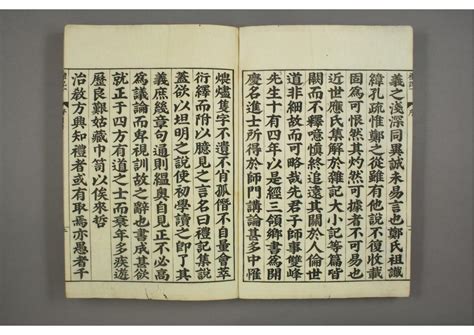 義之淺深同異誠未易言也鄭氏祖讖
緯孔疏惟鄭之從雖有他說不復收載
固為可恨然其灼然可據者不可易也
近世應氏集解於雜記大小記等篇皆
闕而不釋噫慎終追遠其關於人倫世
道非細故而可略哉先君子師事雙峰
先生十有四年以是經三領鄉書為開
慶名進士所得於師門講論甚多中罹
煨燼隻字不遺不肖孤僭不自量會萃
衍繹而附以臆見之言名曰禮記集說
蓋欲以坦明之說使初學讀之即了其
義庶幾章句通則蘊奧自見正不必高
為議論而卑視訓故之辭也書成甚欲
就正于四方有道之士而衰年多疾遊
歷良艱姑藏巾笥以俟來哲
治教方興知禮者或有取焉亦愚者千